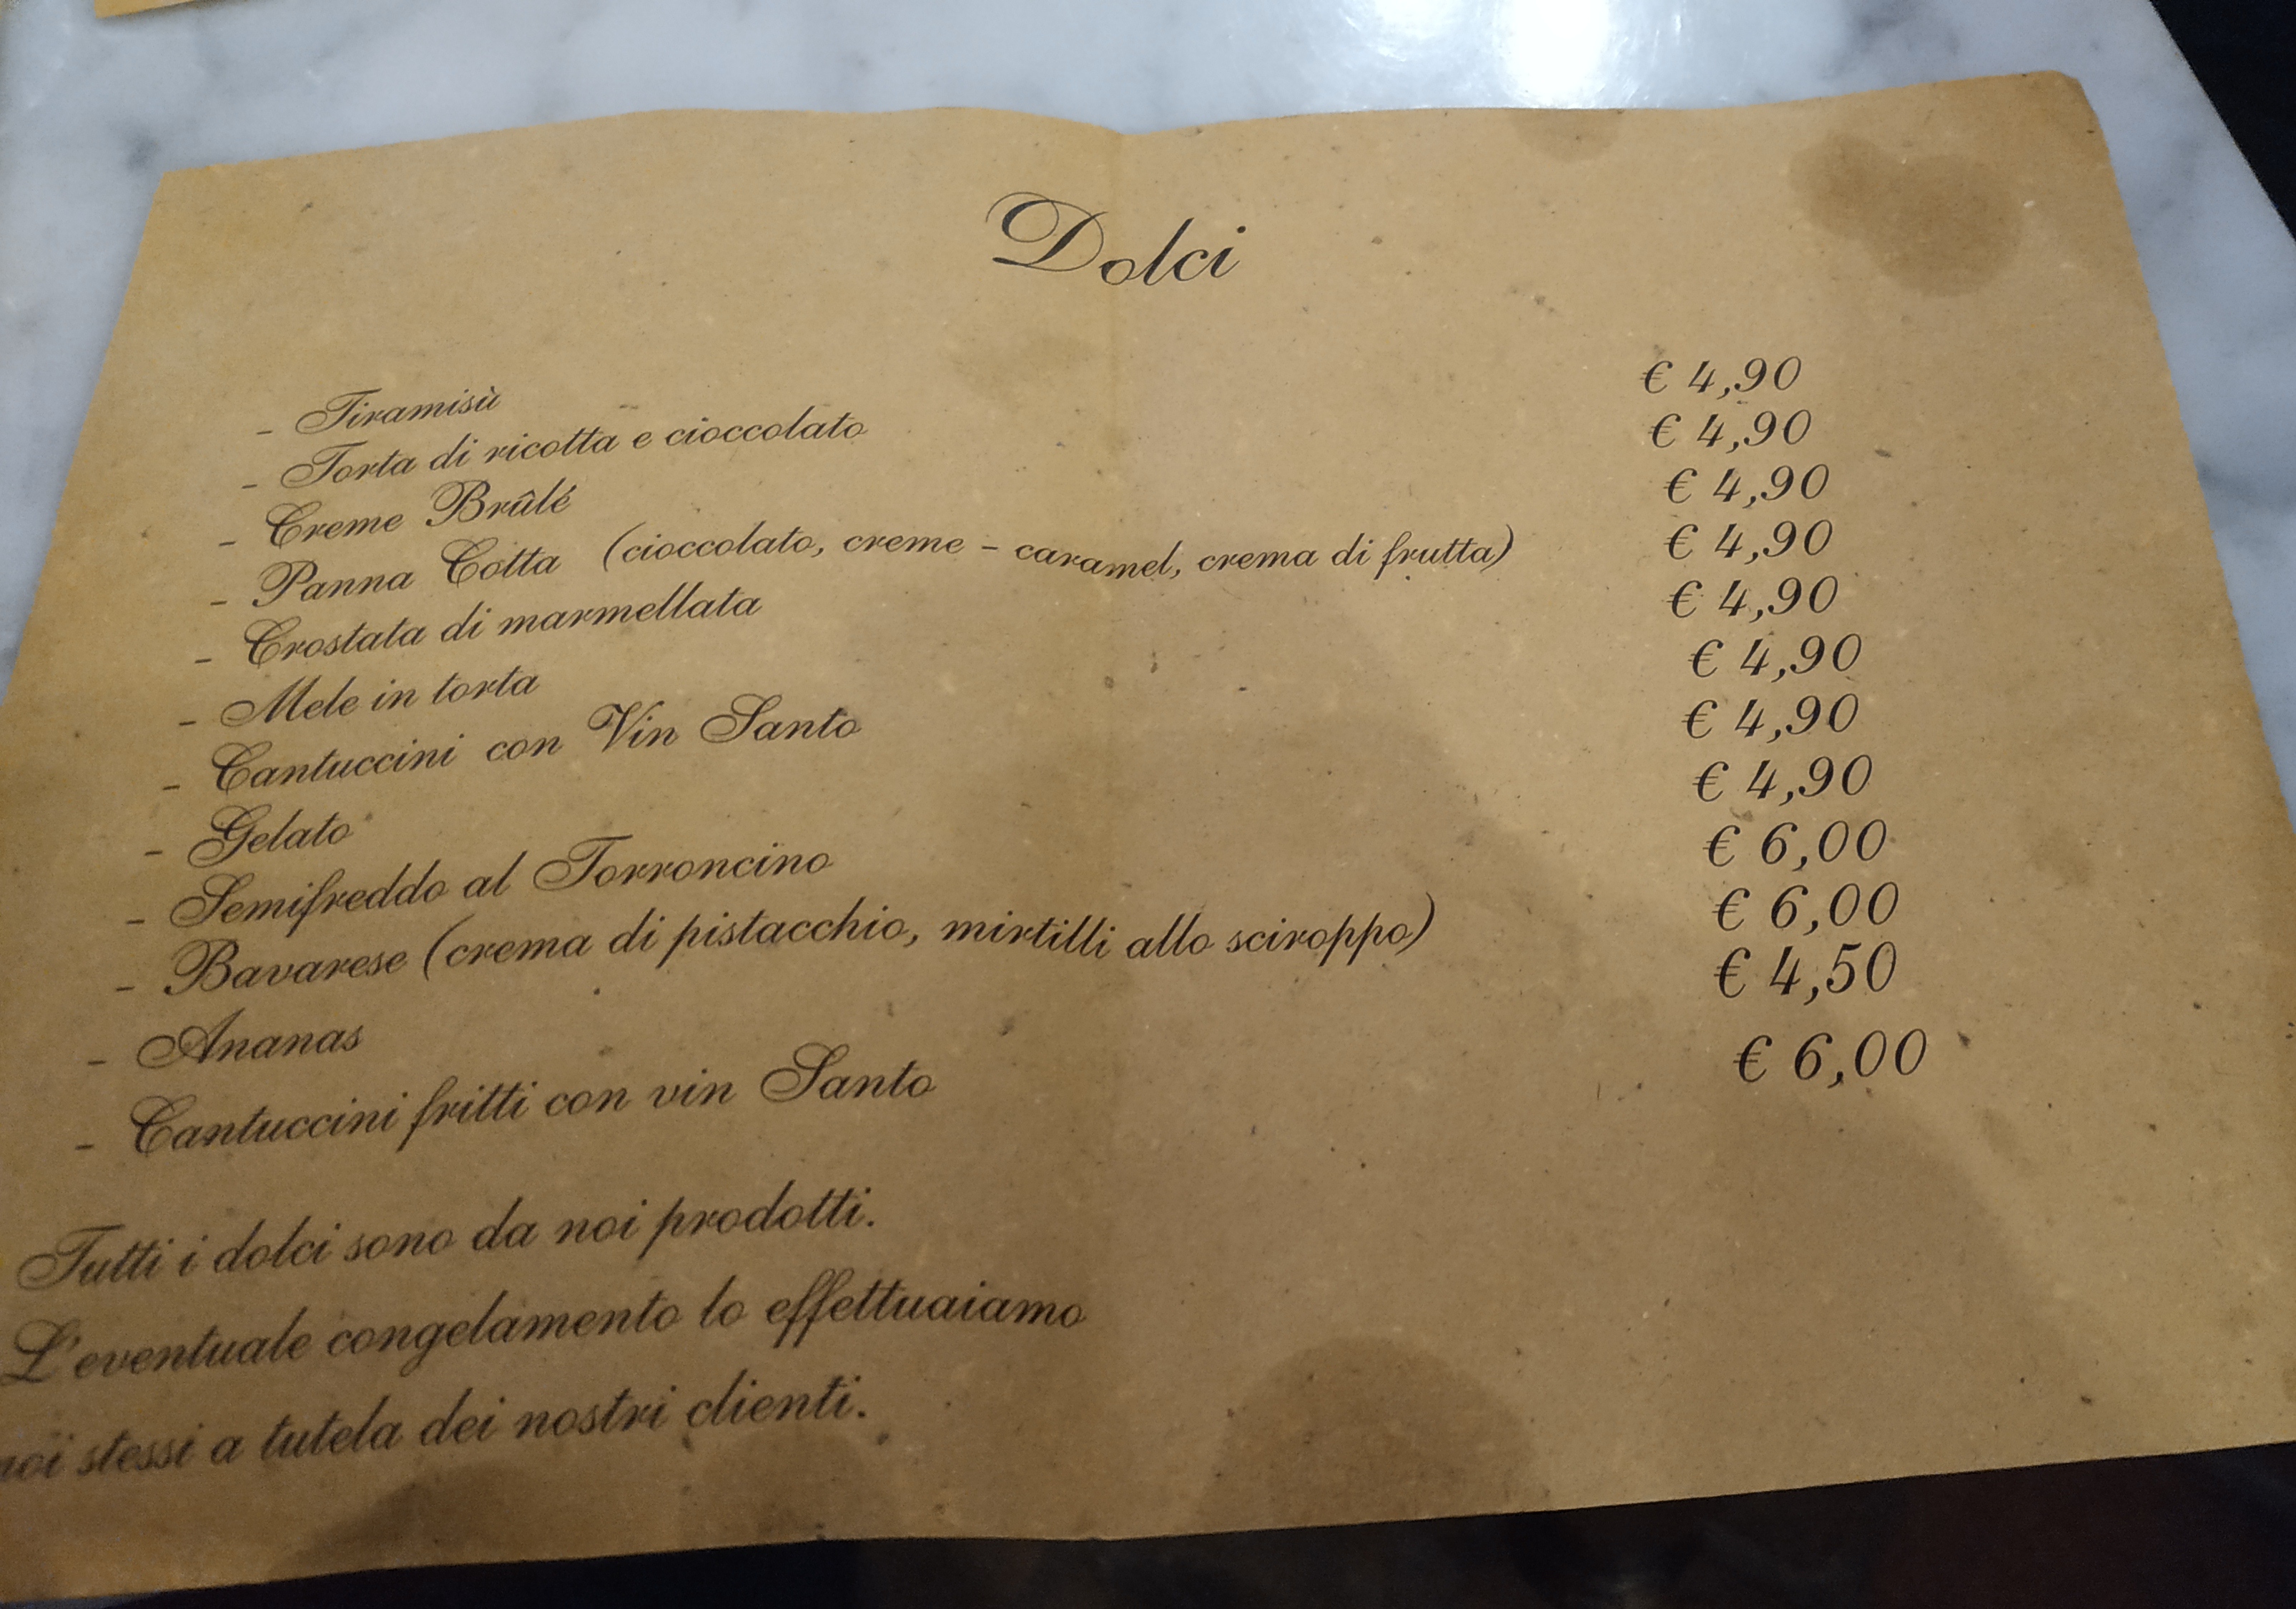 Dolci
- Tiramisù € 4,90
- Torta di ricotta e cioccolato € 4,90
- Creme Brûlé € 4,90
- Panna Cotta (cioccolato, creme - caramel, crema di frutta) € 4,90
- Crostata di marmellata € 4,90
- Mele in torta € 4,90
- Cantuccini con Vin Santo € 4,90
- Gelato € 4,90
- Semifreddo al Torroncino € 6,00
- Bavarese (crema di pistacchio, mirtilli allo sciroppo) € 6,00
- Ananas € 4,50
- Cantuccini fritti con vin Santo € 6,00
Tutti i dolci sono da noi prodotti.
L'eventuale congelamento lo effettuaiamo
noi stessi a tutela dei nostri clienti.